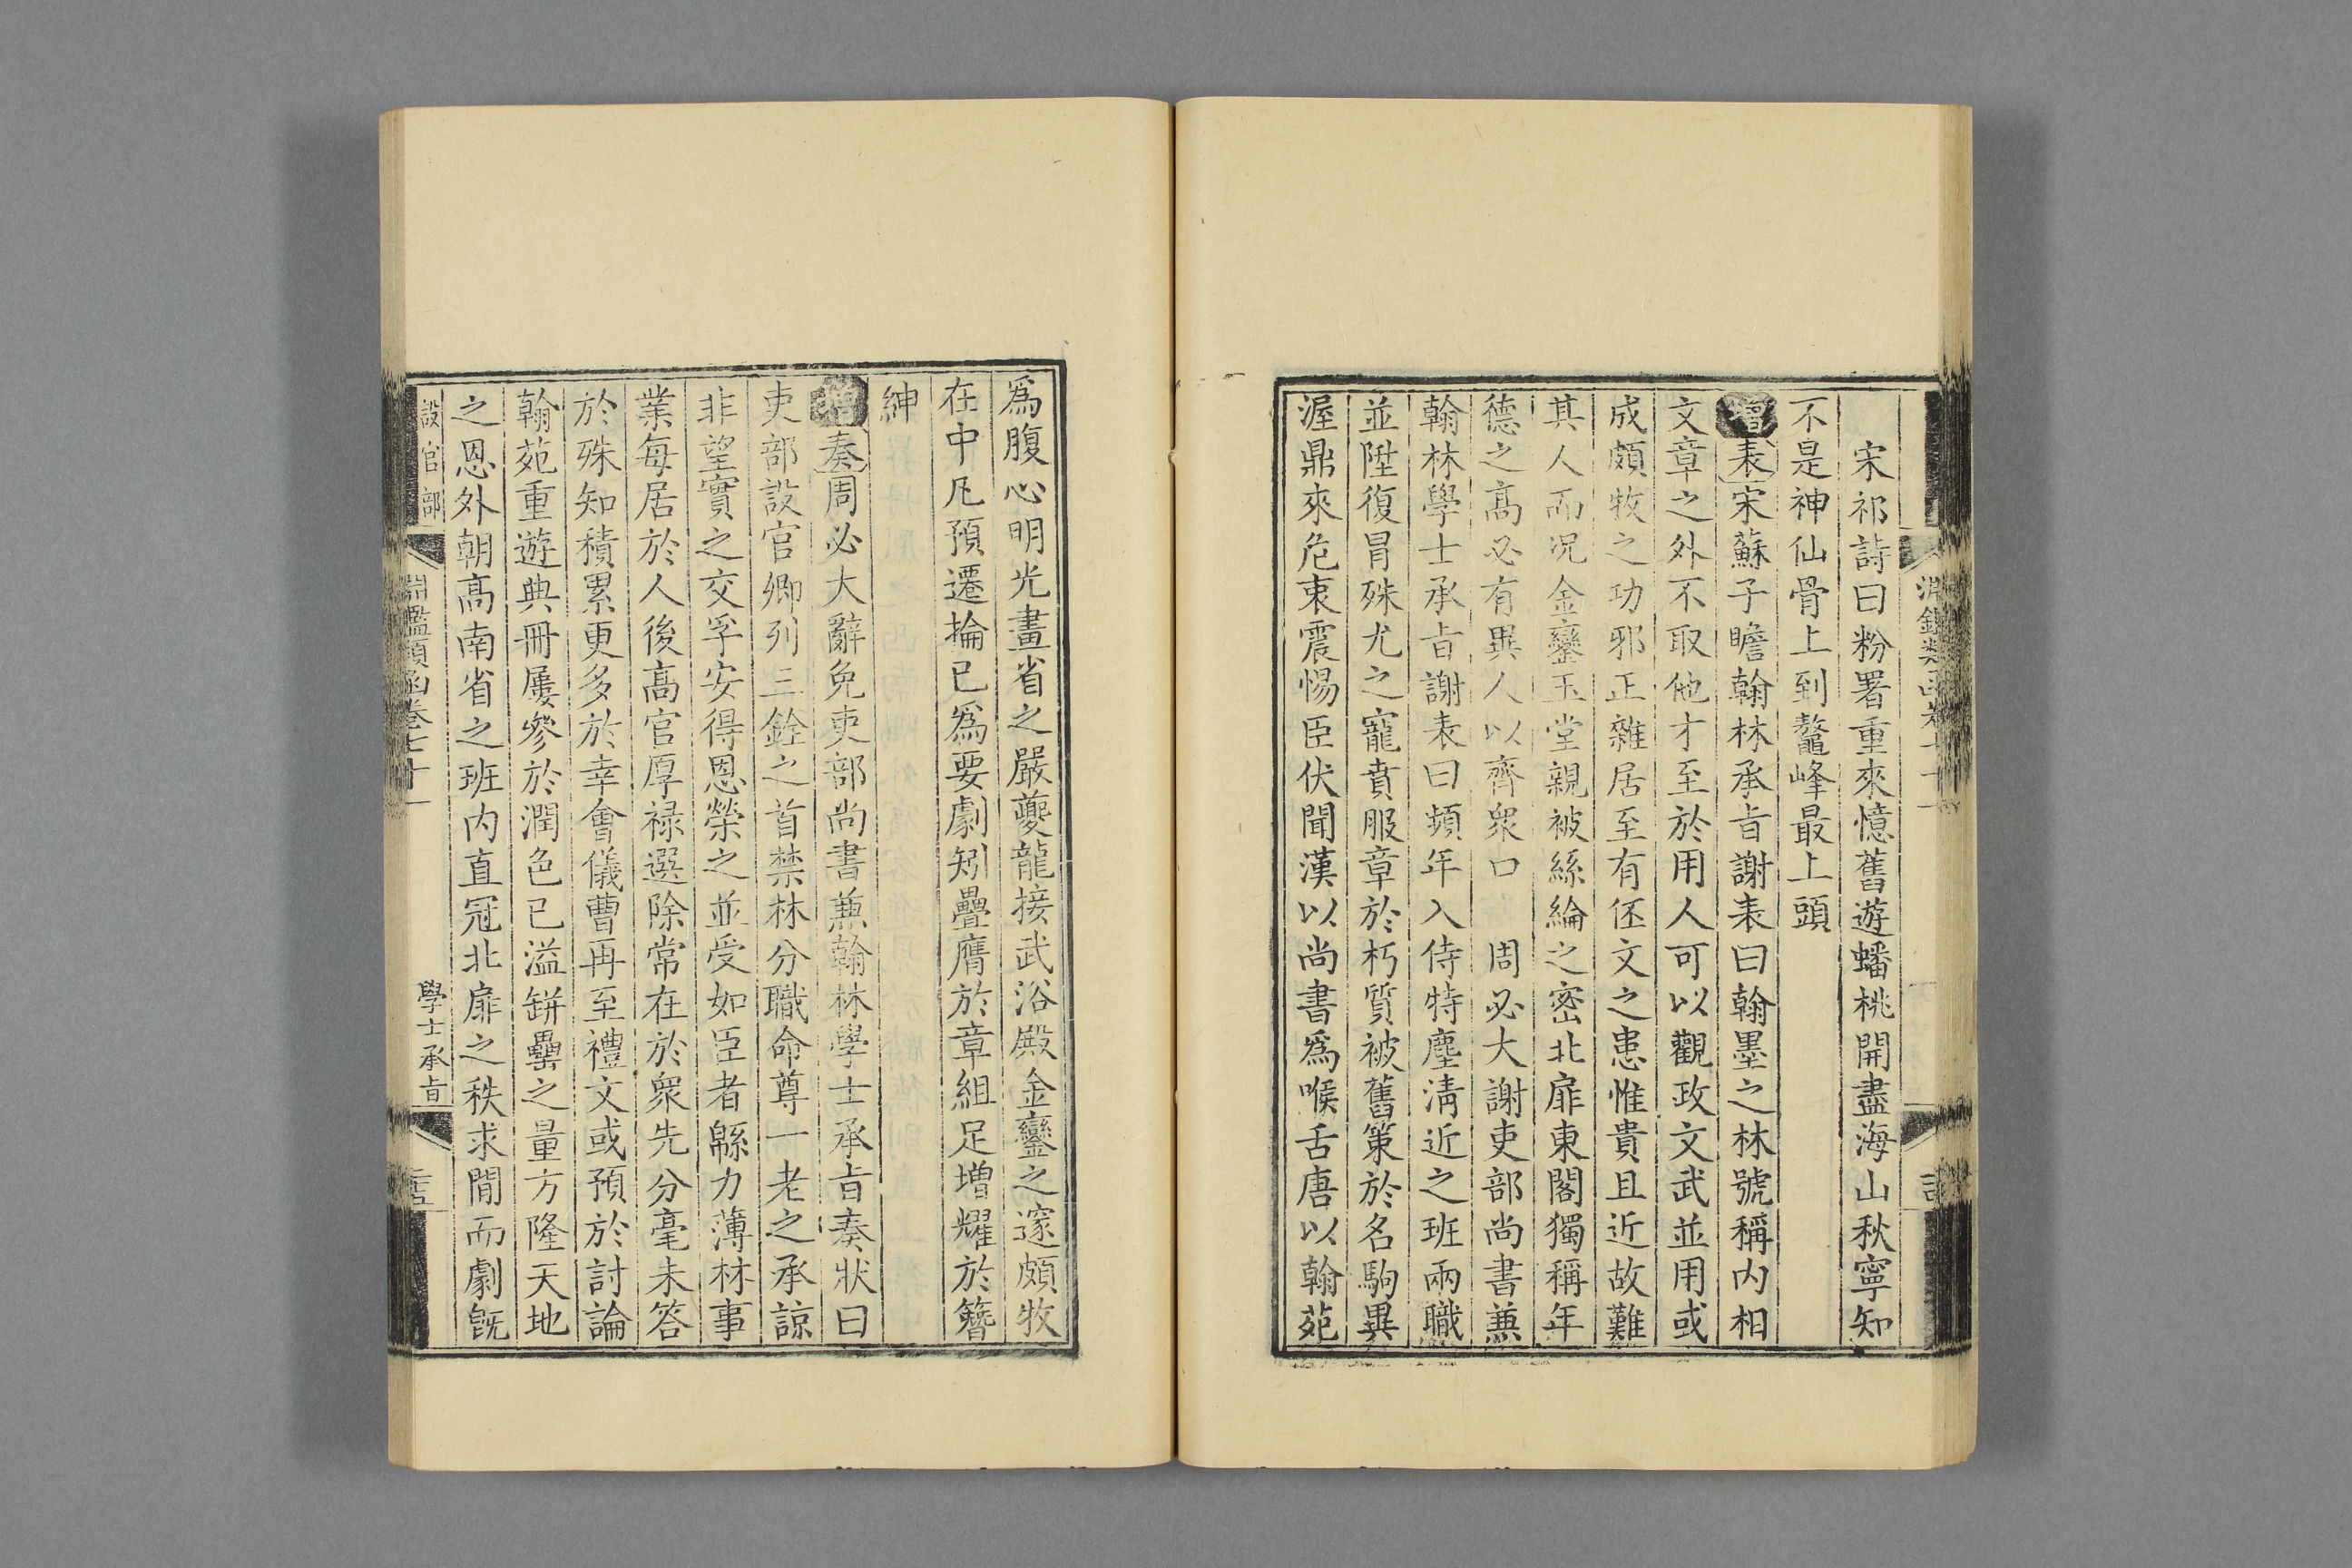 宋祁詩曰粉署重來憶舊遊蟠桃開盡海山秋寧知
不是神仙骨上到鼇峰最上頭
增表宋蘇子瞻翰林承旨謝表曰翰墨之林號稱内相
文章之外不取他才至於用人可以觀政文武並用或
成頗牧之功邪正雜居至有伾文之患惟貴且近故難
其人而况金鑾玉堂親被絲綸之密北扉東閣獨稱年
德之髙必有異人以齊衆口　周必大謝吏部尚書兼
翰林學士承旨謝表曰頻年入侍特塵清近之班兩職
並陞復冒殊尤之寵賁服章於朽質被舊策於名駒異
渥鼎來危衷震惕臣伏聞漢以尚書爲喉舌唐以翰苑
爲腹心明光畫省之嚴夔龍接武浴殿金鑾之邃頗牧
在中凡預遷掄已爲要劇矧疊膺於章組足增耀於簪
紳
增奏周必大辭免吏部尚書兼翰林學士承旨奏狀曰
吏部設官卿列三銓之首禁林分職命尊一老之承諒
非望實之交孚安得恩榮之並受如臣者緜力薄材事
業每居於人後髙官厚禄選除常在於衆先分毫未答
於殊知積累更多於幸會儀曹再至禮文或預於討論
翰苑重遊典冊屢參於潤色已溢缾罍之量方隆天地
之恩外朝髙南省之班内直冠北扉之秩求閒而劇旣
設官部
淵鑑類函卷七十一
學士承旨